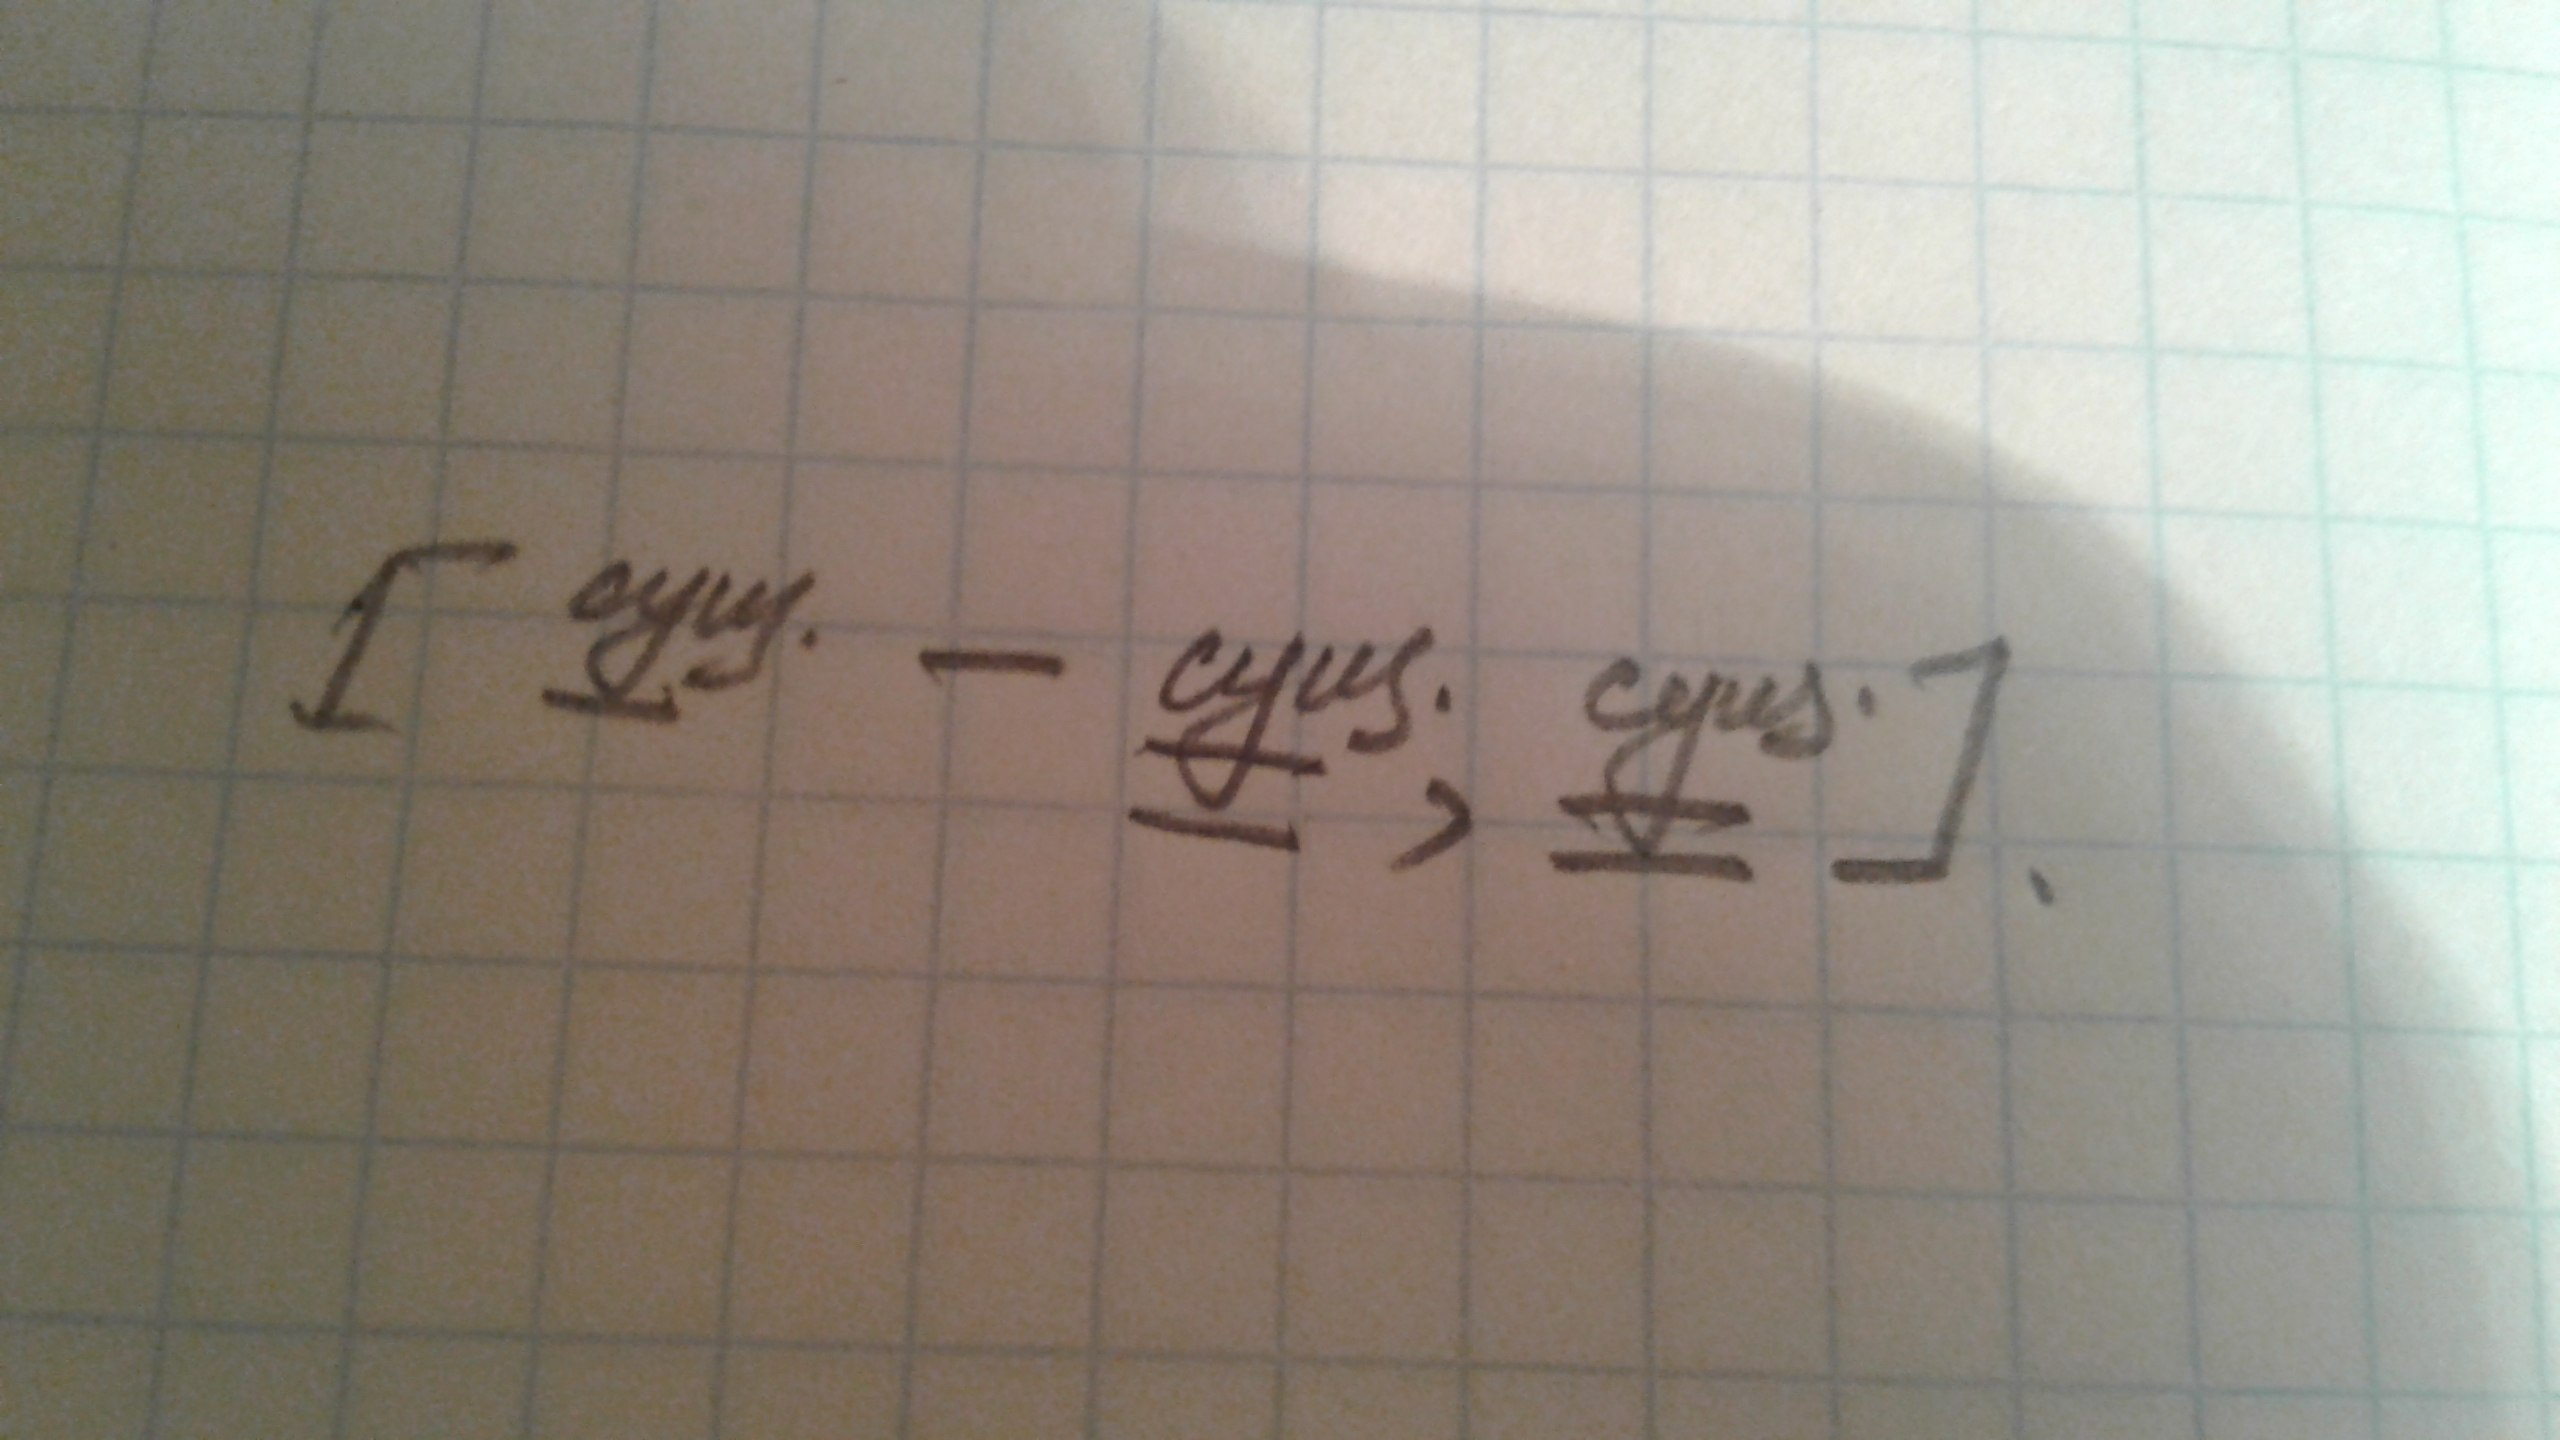 [ сущ. – сущ., сущ. ].